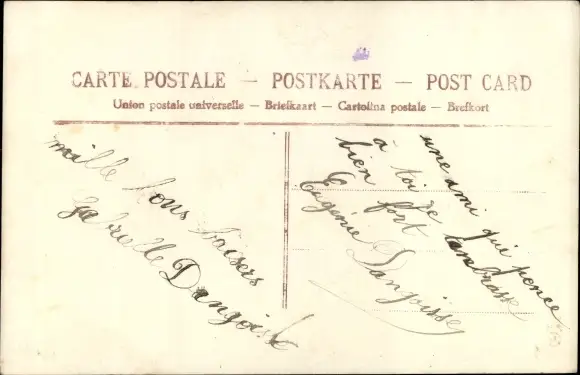 CARTE POSTALE — POSTKARTE — POST CARD
Union postale universelle — Briefkaart — Cartolina postale — Brefkort
mille bons baisers
Gabrielle Dangoisse
une ami qui pence
à toi je tambrasse
bien fort
Eugénie Dangoisse